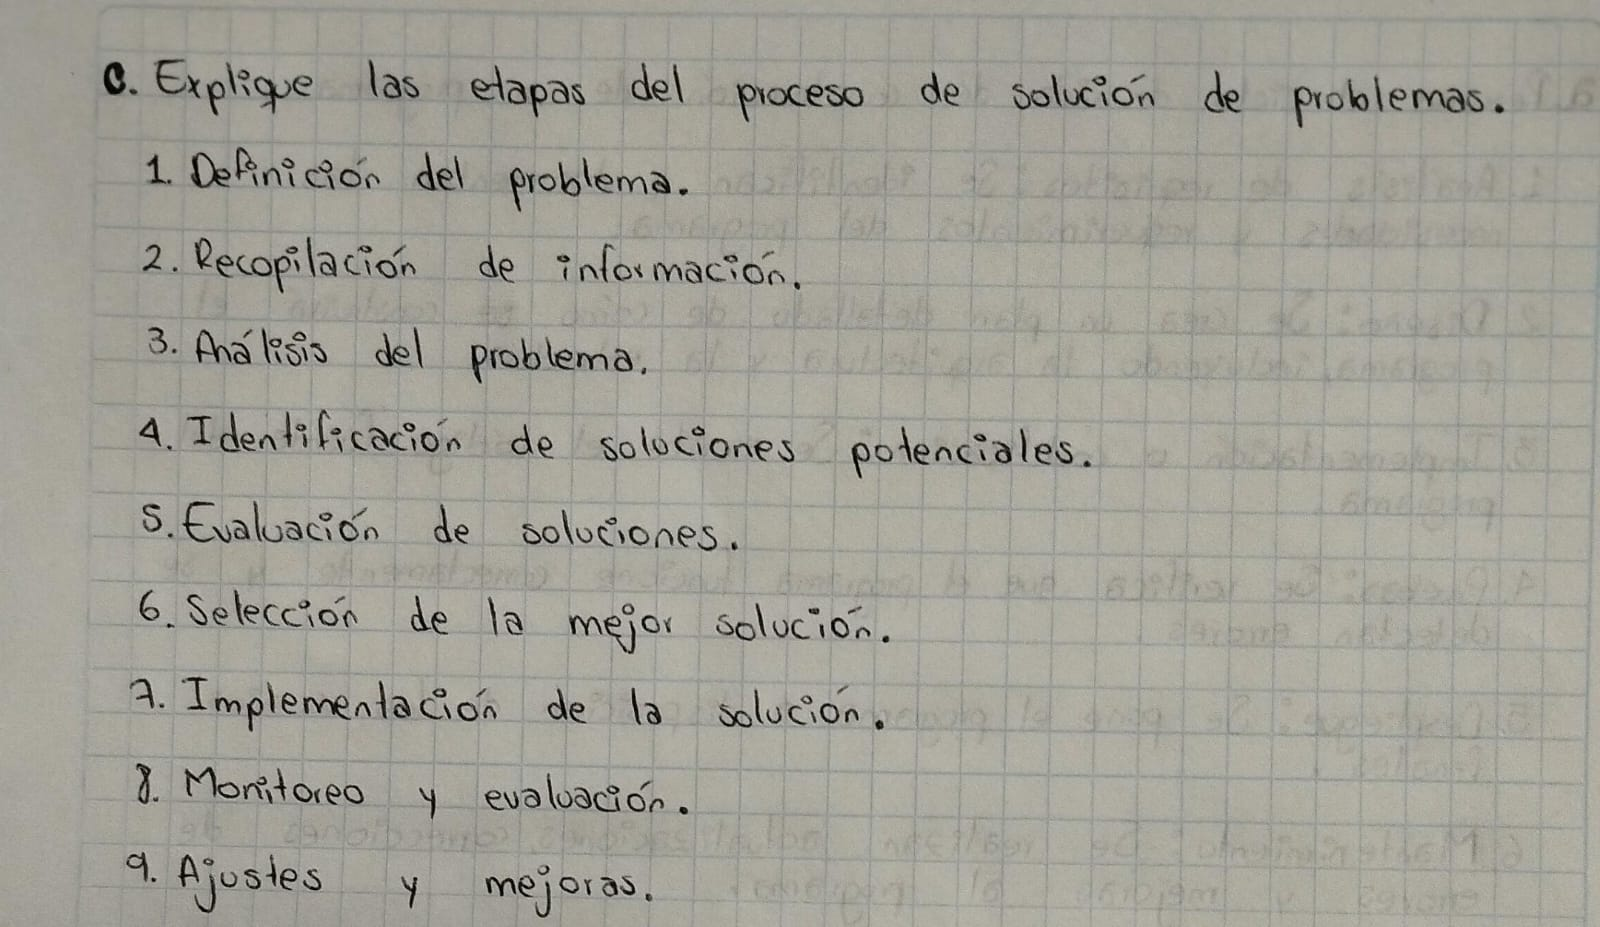 C. Explique las etapas del proceso de solución de problemas.
1. Definición del problema.
2. Recopilación de información.
3. Análisis del problema.
4. Identificación de soluciones potenciales.
5. Evaluación de soluciones.
6. Selección de la mejor solución.
7. Implementación de la solución.
8. Monitoreo y evaluación.
9. Ajustes y mejoras.